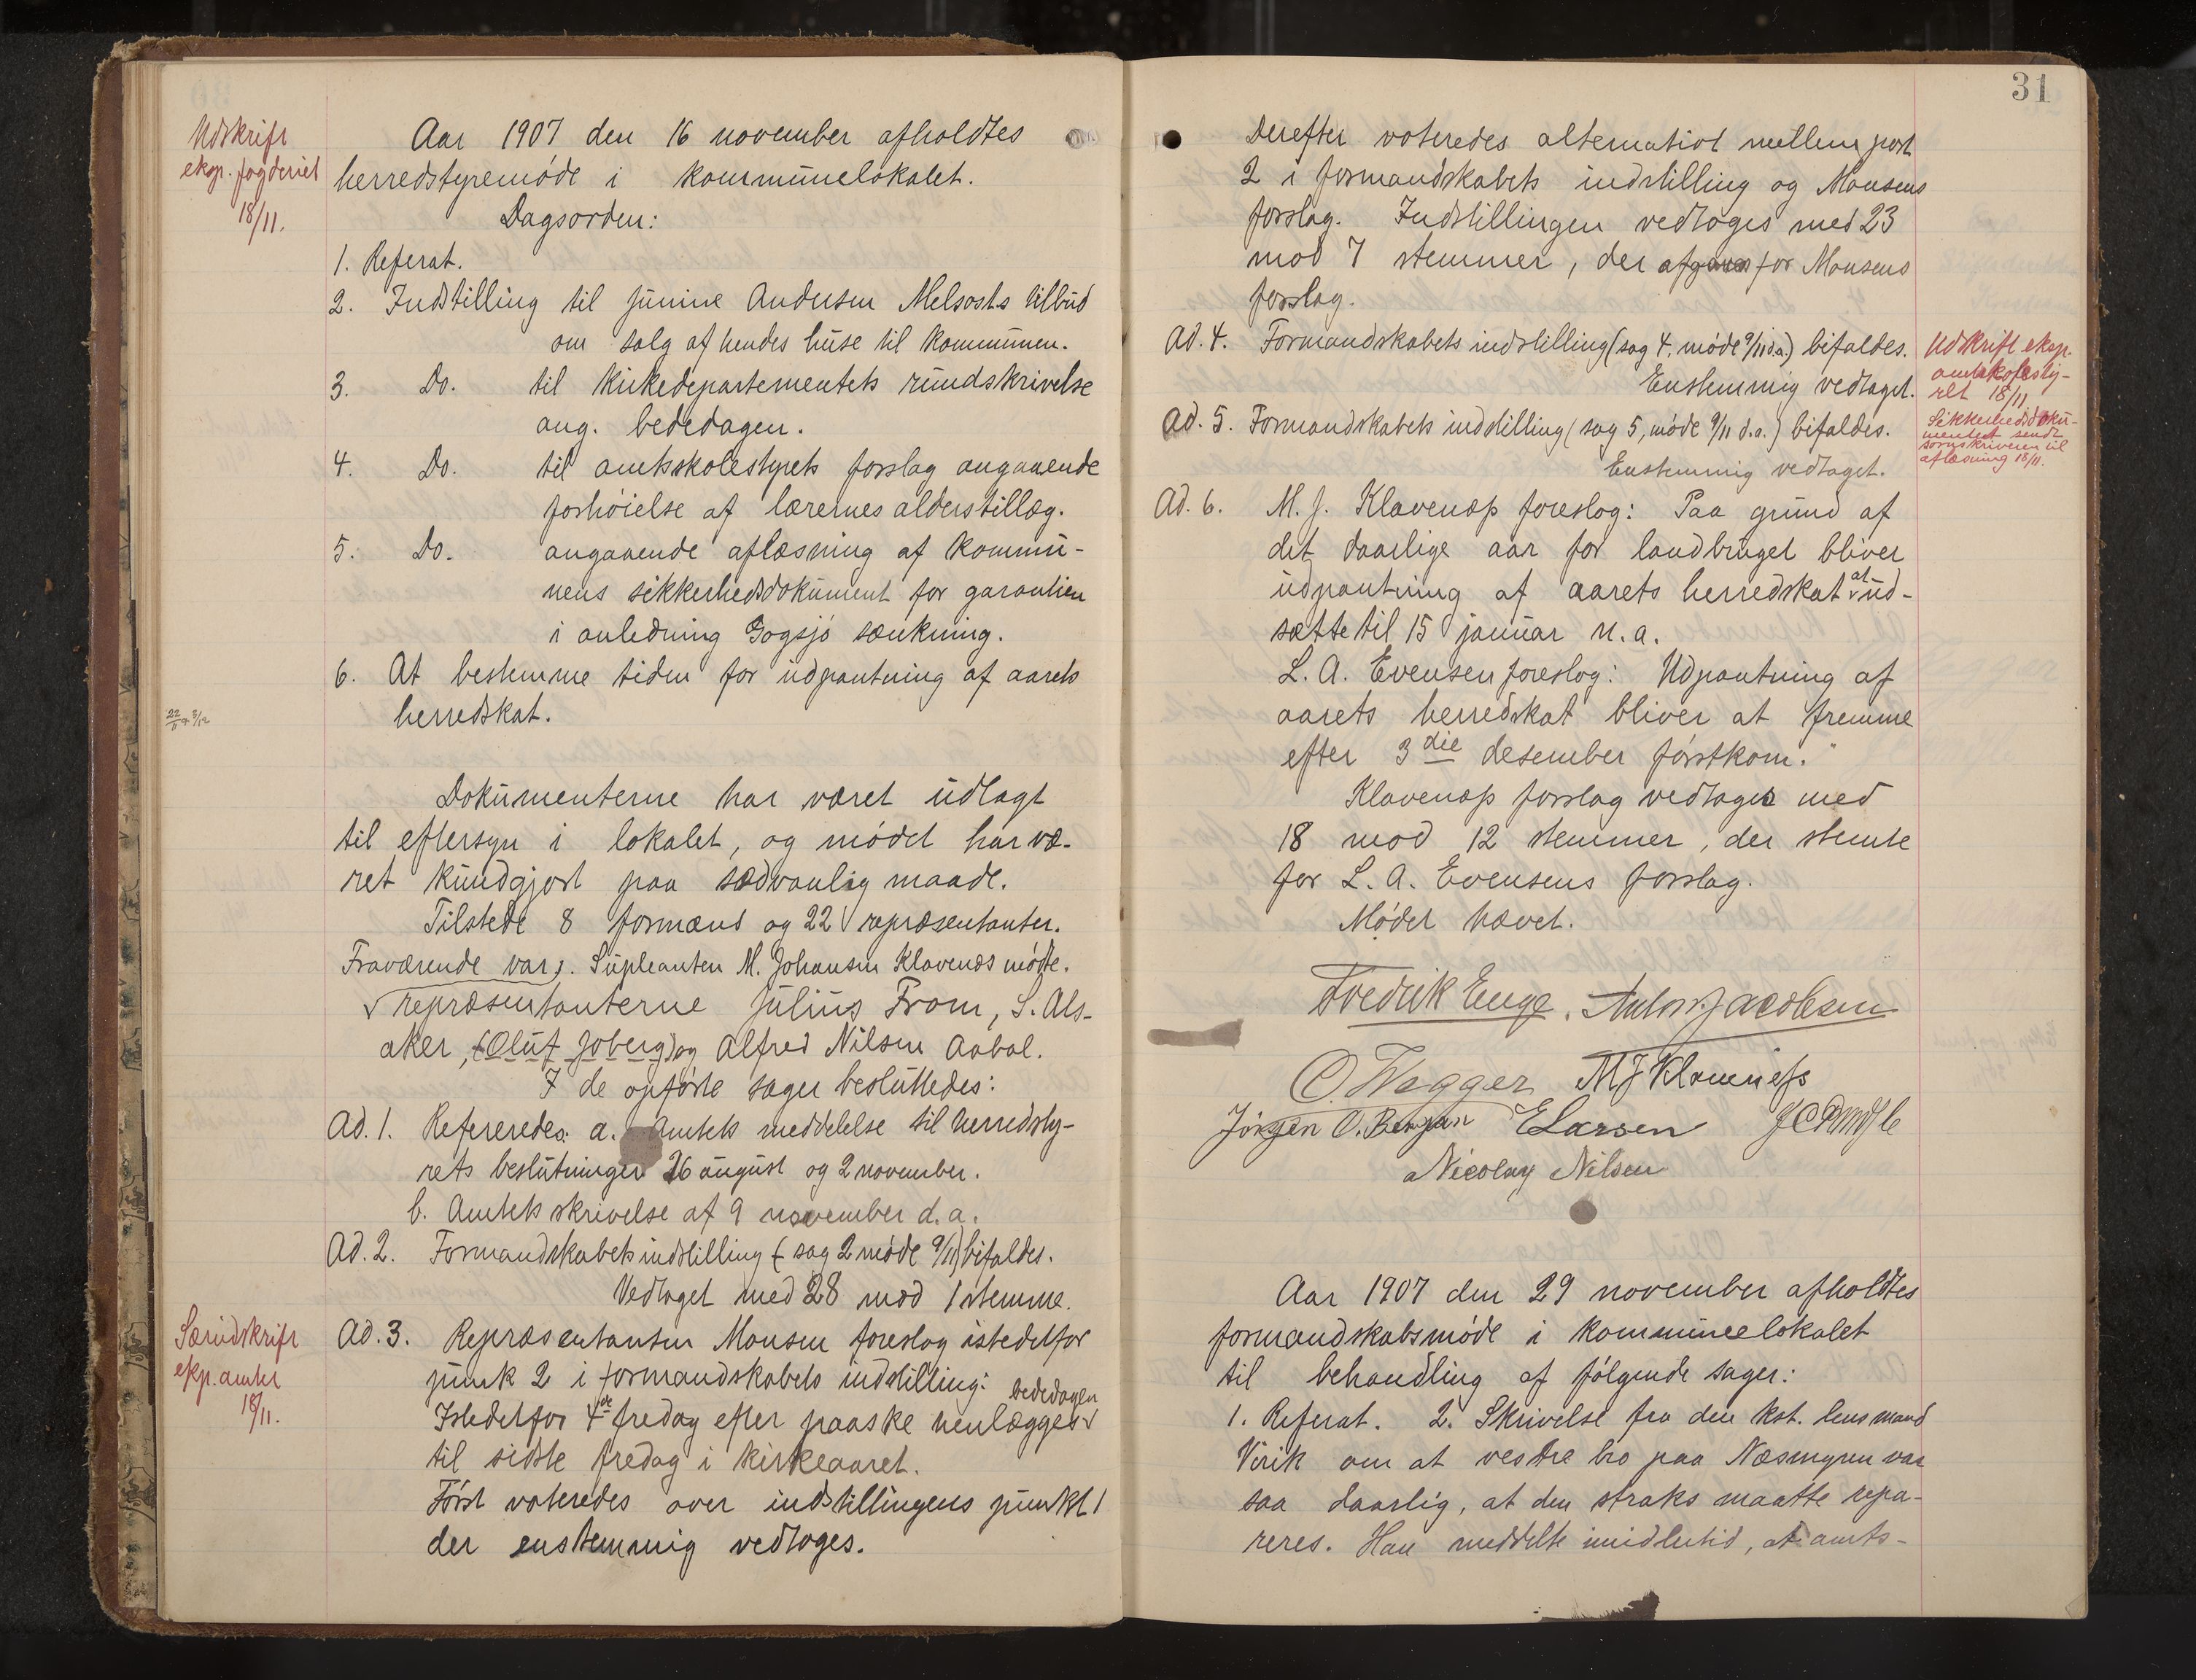 Udskrift
eksp. fogderiet
18/11.
Aar 1907 den 16 november afholdtes
herredstyremøde i kommunelokalet.
Dagsorden:
1. Referat.
2. Indstilling til Junine Andersen Melsoms tilbud
om salg af hendes huse til kommunen.
3. Do. til kirkedepartementets rundskrivelse
ang. bededagen.
4. Do. til amtsskolestyrets forslag angaaende
forhøielse af lærernes alderstillæg.
5. Do. angaaende aflæsning af kommu-
nens sikkerhedsdokument for garantien
i anledning Gogsjø sænkning.
6. At bestemme tiden for udpantning af aarets
herredskat.
Dokumenterne har været udlagt
til eftersyn i lokalet, og mødet har væ-
ret kundgjort paa sædvanlig maade.
Tilstede 8 formænd og 22 repræsentanter.
Fraværende var, . Supleanten M. Johansen Klavenæs mødte.
repræsentanterne Julius From, S. Als-
aker, (Oluf Joberg) og Alfred Nilsen Aabol.
I de opførte sager besluttedes:
Ad. 1. Refereredes: a. Amtets meddelelse til herredsty-
rets beslutninger 26 august og 2 november.
b. Amtets skrivelse af 9 november d.a.
Ad. 2. Formandskabets indstilling ( sag 2 møde 9/11) bifaldes.
Vedtaget med 28 mod 1 stemme.
Særudskrift
eksp. amtet
18/11.
Ad. 3. Repræsentanten Monsen foreslog istedetfor
punk 2 i formandskabets indstilling:
Istedetfor 4de fredag efter paaske henlægges bededagen
til sidste fredag i kirkeaaret.
Først voteredes over indstillingens punkt 1
der enstemmig vedtoges.
31
Derefter voteredes alternativt mellem post
2 i formandskabets indstilling og Monsens
forslag. Indstillingen vedtoges med 23
mod 7 stemmer, der afgaves for Monsens
forslag.
Ad. 4. Formandskabets indstilling (sag 4, møde 9/11 d.a.) bifaldes.
Enstemmig vedtaget.
Udskrift eksp.
amtskolesty-
ret 18/11
Ad. 5. Formandskabets indstilling ( sag 5, møde 9/11 d.a.) bifaldes.
Enstemmig vedtaget.
Sikkerhedsdoku-
mentet sendt
sorenskriveren til
aflæsning 18/11.
Ad. 6. M. J. Klavenæs foreslog: Paa grund af
det daarlige aar for landbruget bliver
udpantning af aarets herredskat at ud-
sætte til 15 januar n. a.
L. A. Evensen foreslog: Udpantning af
aarets herredskat bliver at fremme
efter 3die desember førstkom."
Klavenæs forslag vedtoges med
18 mod 12 stemmer, der stemte
for L. A. Evensens forslag.
Mødet hævet.
Fredrik Enge. Anton Jacobsen
O. Wegger M J Klavenæss
Jørgen O. Bergan E Larsen
Nicolay Nilsen
Aar 1907 den 29 november afholdtes
formandskabsmøde i kommunelokalet
til behandling af følgende sager:
1. Referat. 2. Skrivelse fra den kst. lensmand
Virik om at vestre bro paa Næsmyren var
saa daarlig, at den straks maatte repa-
reres. Han meddelte imidlertid, at amts-